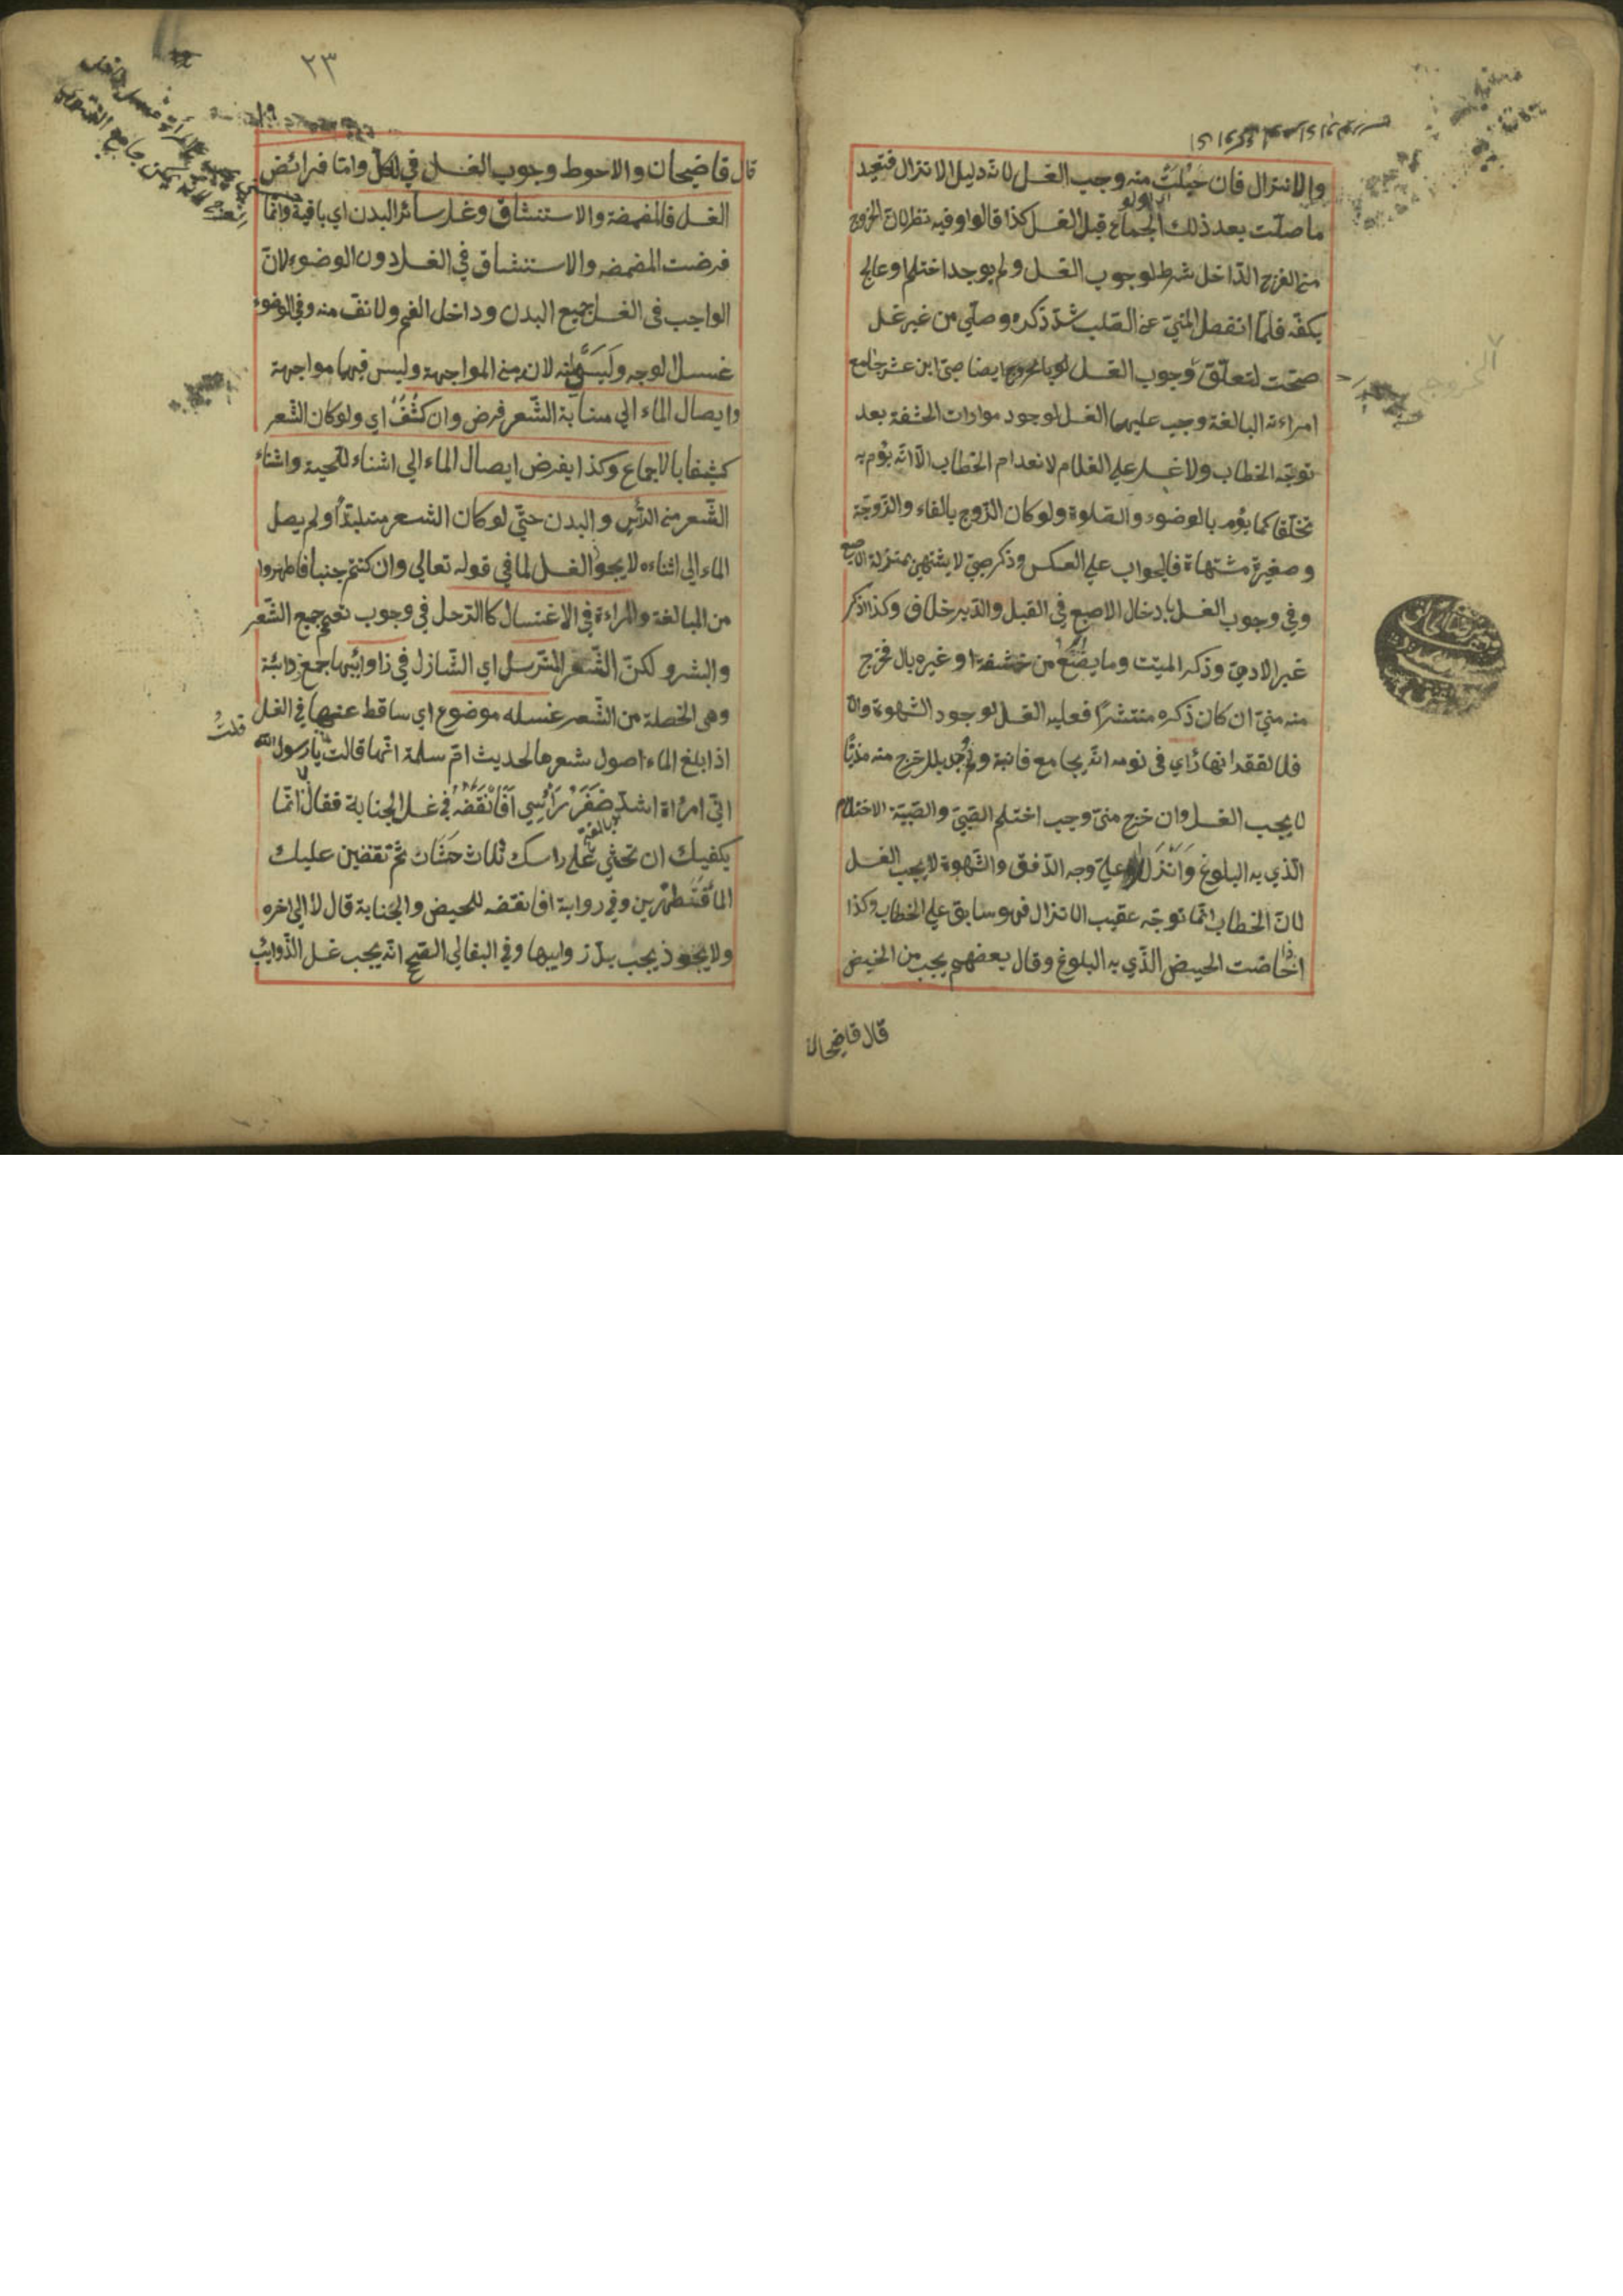 والانزال فان حبلت منه وجب الغسل لانه دليل الانزال فتعيد
ما صلت بعد ذلك الجماع قبل الغسل كذا قالوا وفيه نظر لان الخروج
من الفرج الداخل شرط لوجوب الغسل ولم يوجد احتلم او عالج
بكفه فلما انفصل المني عن الصلب شد ذكره وصلي من غير غسل
صحت لتعلق وجوب الغسل بالخروج ايضا صبي ابن عشر جامع
امراءته البالغة وجب عليها الغسل لوجود موارات الحشفة بعد
توجه الخطاب ولا غسل علي الغلام لانعدام الخطاب الا انه يؤمر به
تخلقا كما يؤمر بالوضوء والصلوة ولو كان الزوج بالغاء والزوجة
وصغيرة مشتهاة فالجواب علي العكس وذكر صبي لا يشتهي بمنزلة الاصبع
وفي وجوب الغسل بادخال الاصبع في القبل والدبر خلاف وكذا ذكر
غير الادمي وذكر الميت وما يصنع من خشفة او غيره بال فخرج
منه مني ان كان ذكره منتشرا فعليه الغسل لوجود الشهوة والا
فلا لفقدانها رأي في نومه انه يجامع فانبة ولم يجد بللا ثم خرج منه مذيا
لا يجب الغسل وان خرج مني وجب احتلم الصبي والصبية الاحتلام
الذي به البلوغ وانزلا علي وجه الدفق والشهوة لا يجب الغسل
لان الخطاب انما توجه عقيب الانزال فهو سابق علي الخطاب وكذا
اذا حاضت الحيض الذي به البلوغ وقال بعضهم يجب من الحيض
قال قاضيحان
٢٣
قال قاضيحان والاحوط وجوب الغسل في الكل واما فرائض
الغسل فالمضمضة والاستنشاق وغسل سائر البدن اي باقية وانما
فرضت المضمضه والاستنشاق في الغسل دون الوضوء لان
الواجب في الغسل جميع البدن وداخل الفم ولانف منه وفي الوضوء
غسل الوجه وليستا منه لانه من المواجهة وليس فيهما مواجهة
وايصال الماء الي منابة الشعر فرض وان كثف اي ولو كان الشعر
كثيفا بالاجماع وكذا يفرض ايصال الماء الي اثناء اللحية واثناء
الشعر من الرأس والبدن حتي لو كان الشعر متلبدا ولم يصل
الماء الي اثناءه لا يجوز الغسل لما في قوله تعالي وان كنتم جنبا فاطهروا
من المبالغة والمراءة في الاغتسال كالرجل في وجوب تعميم جميع الشعر
والبشر ولكن الشعر المسترسل اي النازل في ذاوائبها جمع ذوابئة
وهي الخصلة من الشعر غسله موضوع اي ساقط عنها في الغسل
اذا بلغ الماء اصول شعرها لحديث ام سلمة انها قالت قلت يا رسول الله
اني امرأة اشد ضفر رأسي افانقضه في غسل الجنابة فقال لا انما
يكفيك ان تحثي علي راسك ثلاث حثيات ثم تفيضين عليك
الماء فتطهرين وفي رواية افانقضه للحيض والجنابة قال لا الي اخره
ولا يجوز يجب بل ذوايبها وفي البقالي الصحيح انه يجب غسل الذوايب